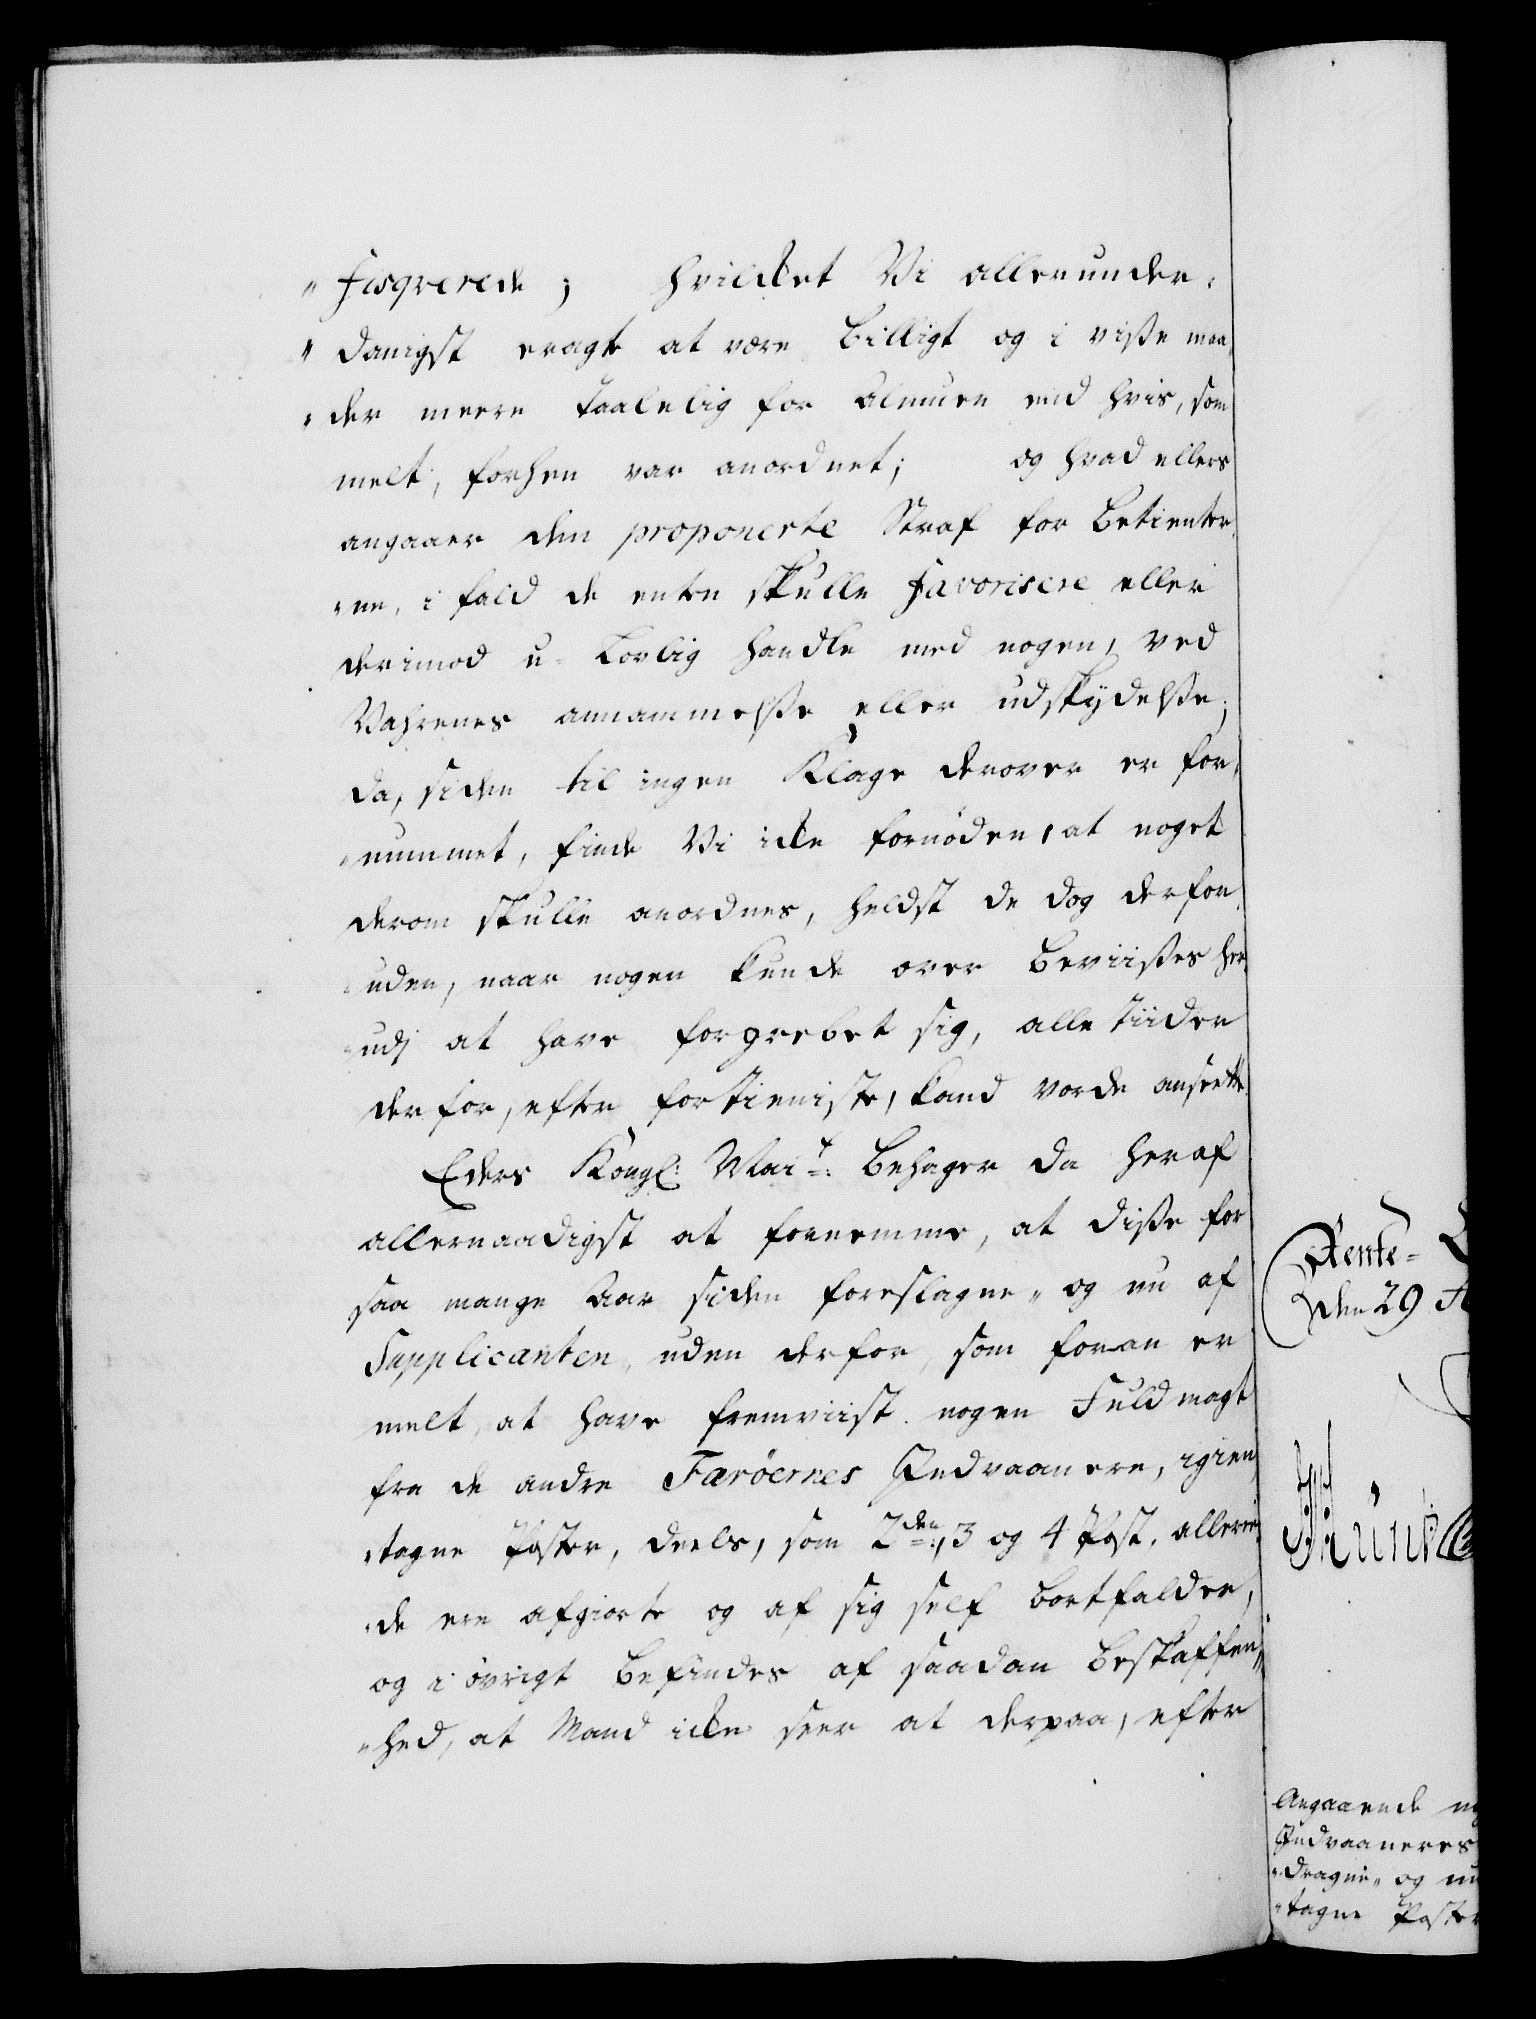 "fisqverede; hvilcket Vi allerunder-
"danigst eragte at være billigt og i visse maa-
"der meere taalelig for Almuen end hvis, som
melt, forhen var anordnet; og hvad ellers
angaaer den proponerte Straf for betienter-
"ne, i fald de enten skulle favorisere eller
derimod u-lovlig handle med nogen, ved
Vahrenes annammelse eller udskydelse;
da, siden til ingen Klage derover er for-
"nummet, finde Vi icke fornöden, at noget
derom skulle anordnes, heldst de dog derfor-
"uden, naar nogen kunde over beviises her-
"udj at have forgrebet sig, alle tiider
derfor, efter fortieniste, kand vorde anseete.
Eders Kongl: Mait: behager da heraf
allernaadigst at fornemme, at disse for
saa mange Aar siden foreslagne, og nu af
Supplicanten, uden derfor, som foran er
melt, at have fremviist nogen Fuldmagt
fra de andre Færöernes Indvaanere, igien-
"tagne Poster, deels, som 2den, 3 og 4 Post, allerie-
"de ere afgiorte og af sig self bortfalder,
og i övrigt befindes af saadan beskaffen-
"hed, at Mand icke seer at derpaa, efter
Rente-
den 29
Angaaende
Indvaaneres
"dragne, og nu
"tagne Poster